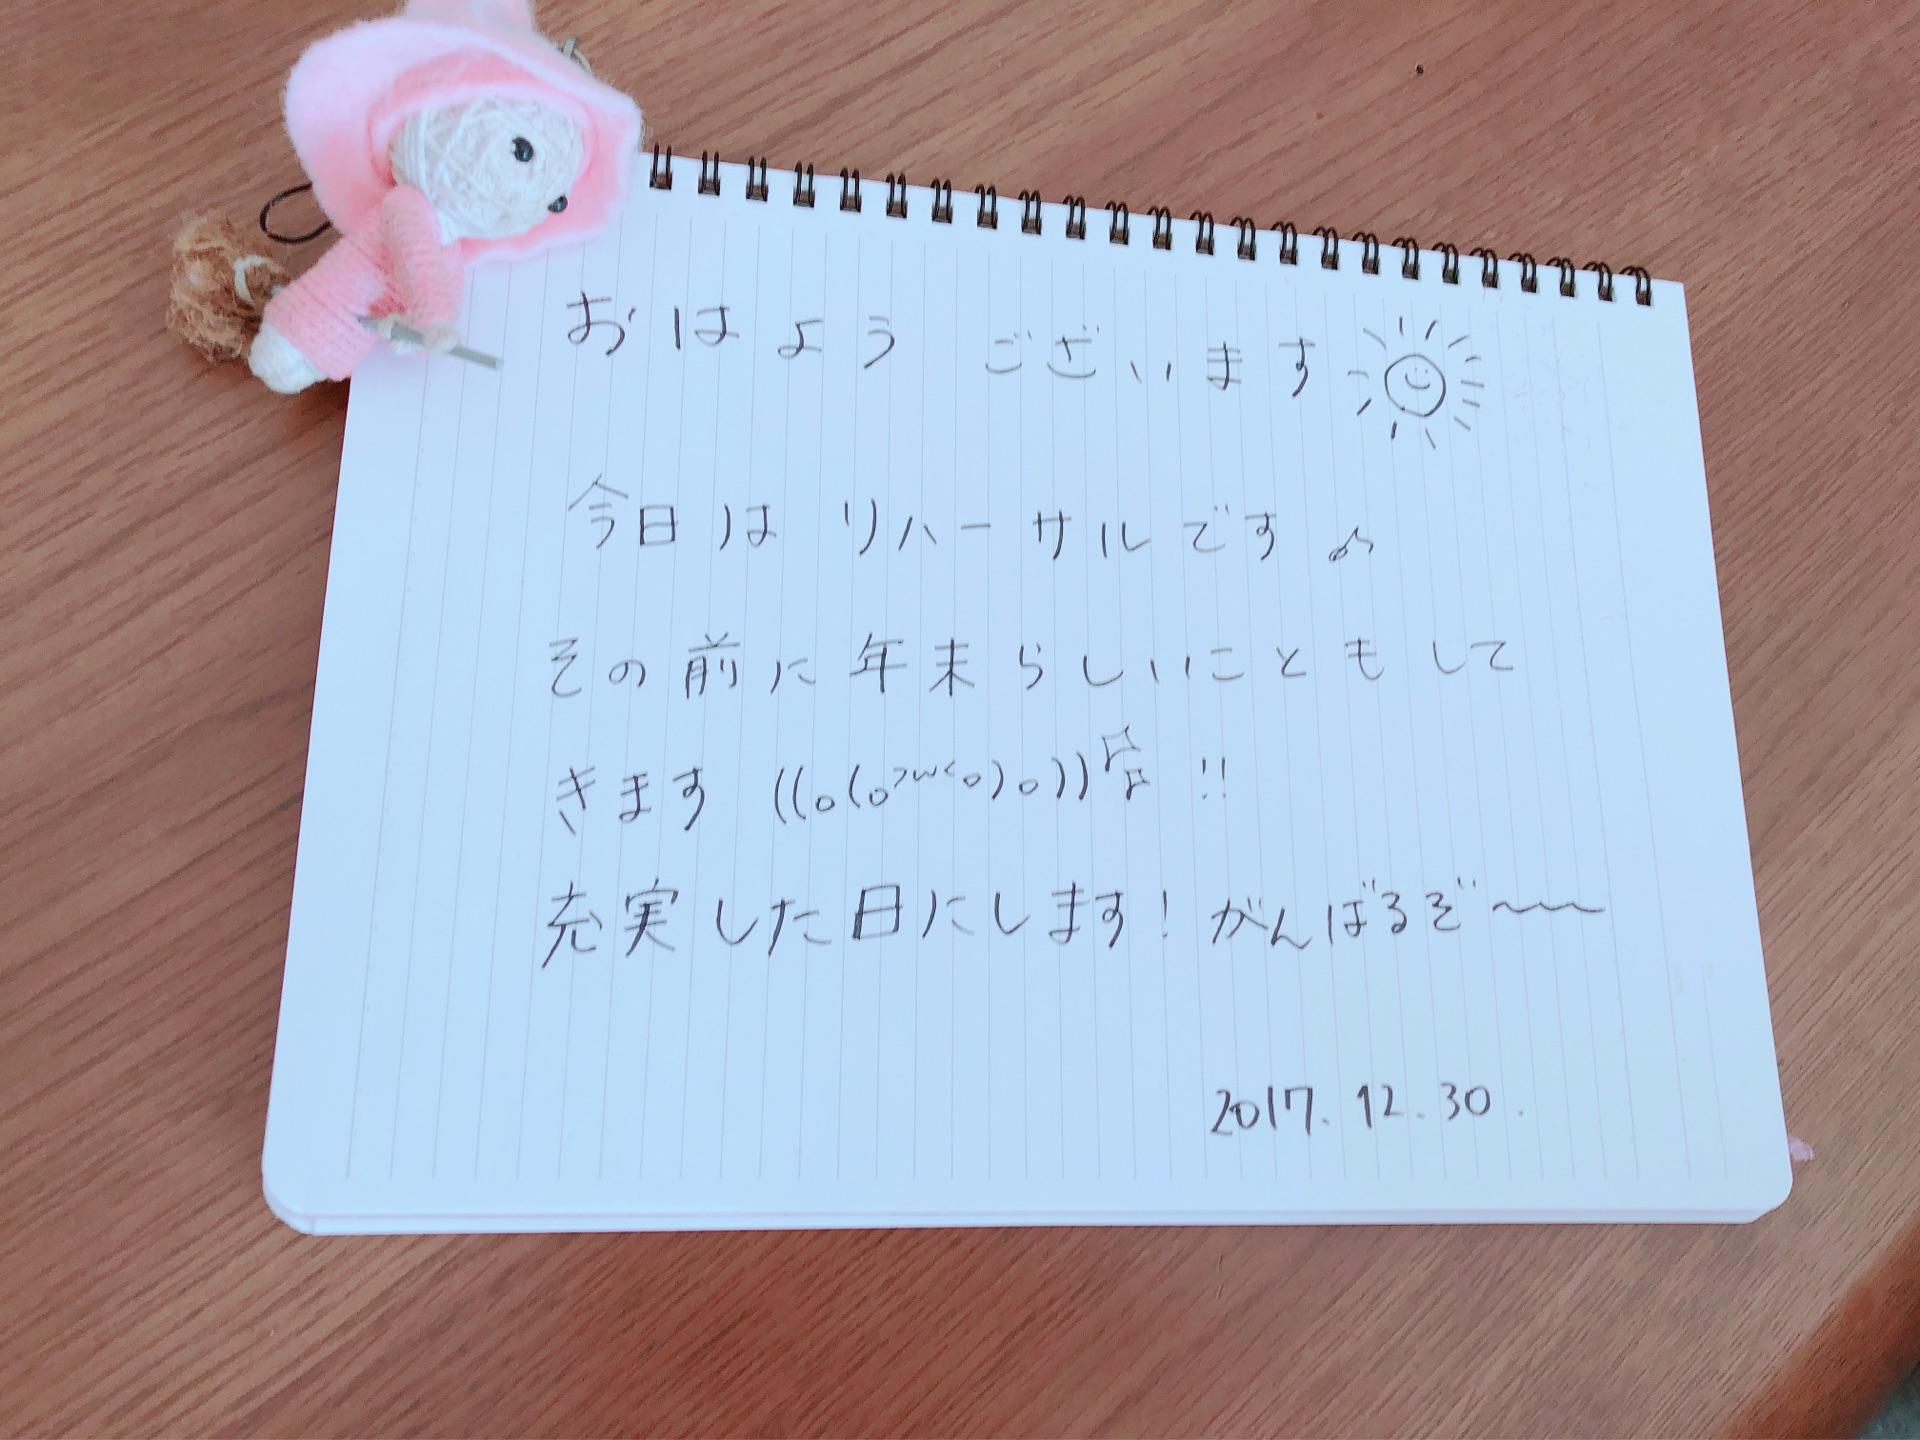 おはよう ございます
今日は リハーサルです♪
その前に年末らしいこともして
きます ((o(o>ω<o)o))!!
充実した日にします! がんばるぞ〜〜
2017.12.30.